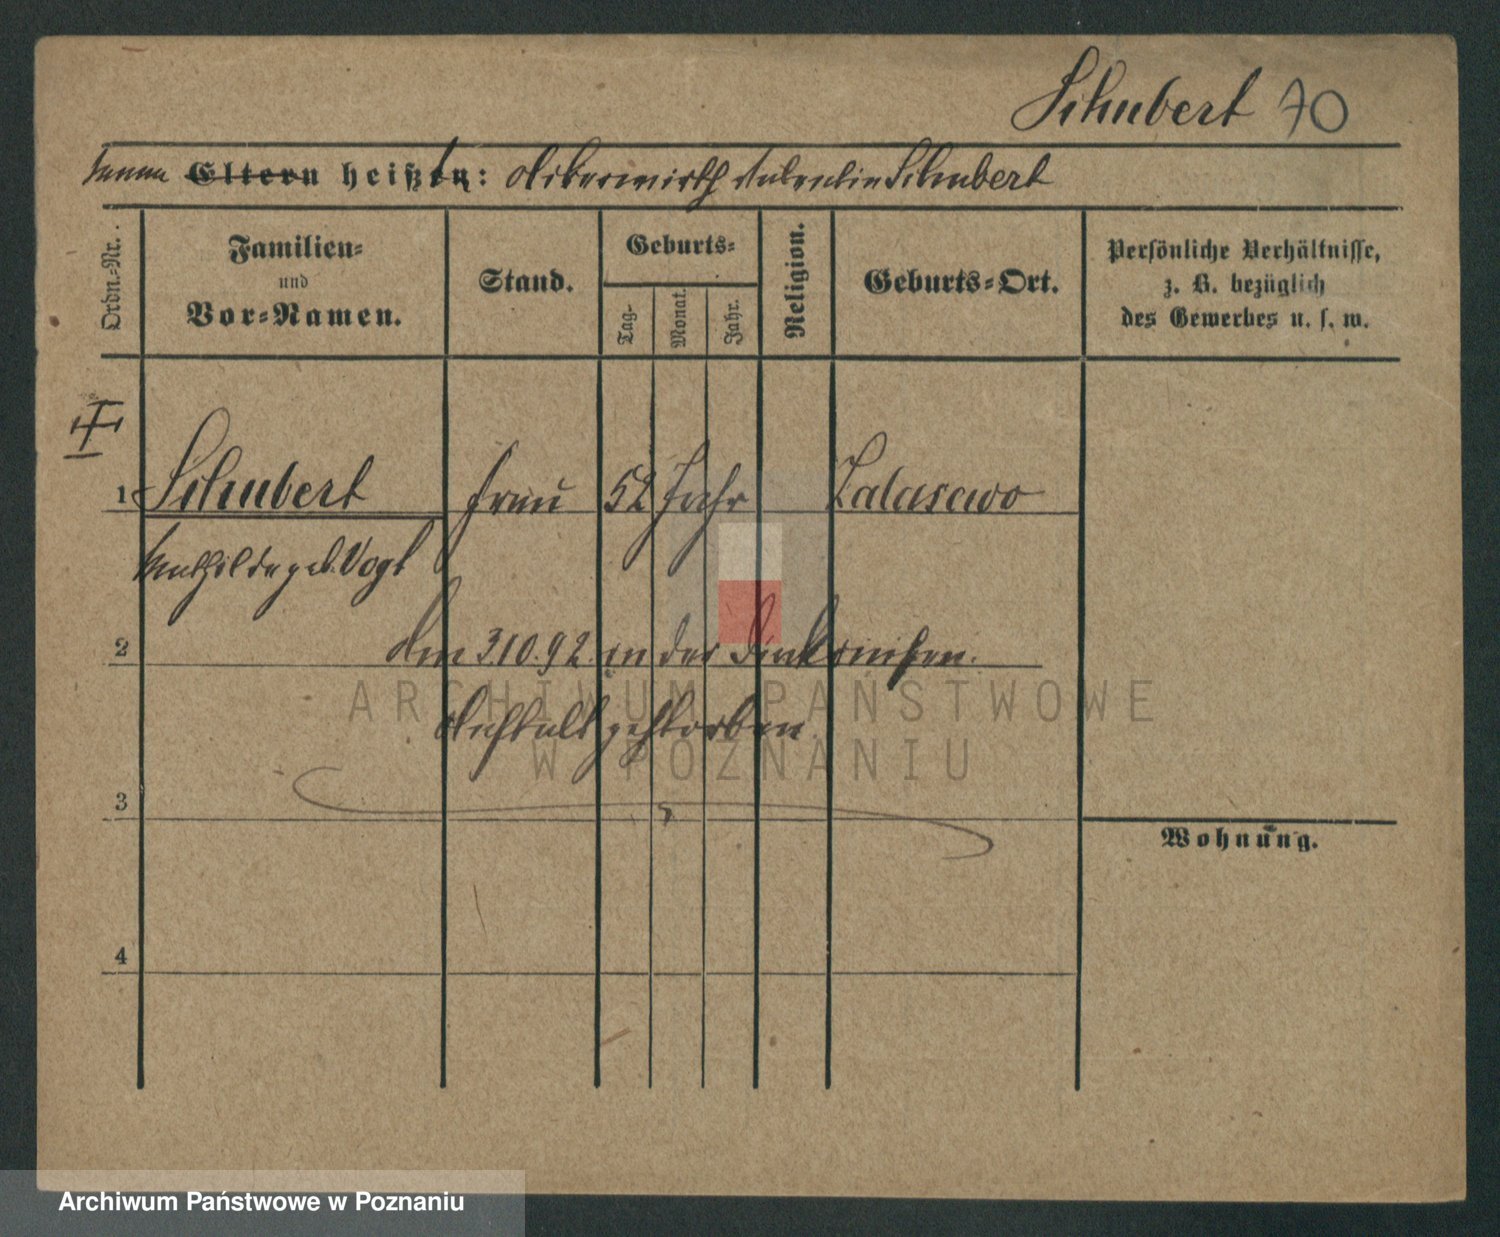 Schubert 70
Eltern heißt: Ackerwirth Valentin Schubert
Ordn.-Nr.
Familien-
und
Vor-Namen.
Stand.
Geburts-
Tag-
Monat.
Jahr.
Religion.
Geburts-Ort.
Persönliche Verhältnisse,
z. B. bezüglich
des Gewerbes u. s. w.
1 Schubert Frau 52 Jahr Zalasewo
Mathilde geb. Vogt
2 Am 3.10.92. in der Diakonissen.
Anstalt gestorben.
3
Wohnung.
4
ARCHIWUM PAŃSTWOWE
W POZNANIU
Archiwum Państwowe w Poznaniu